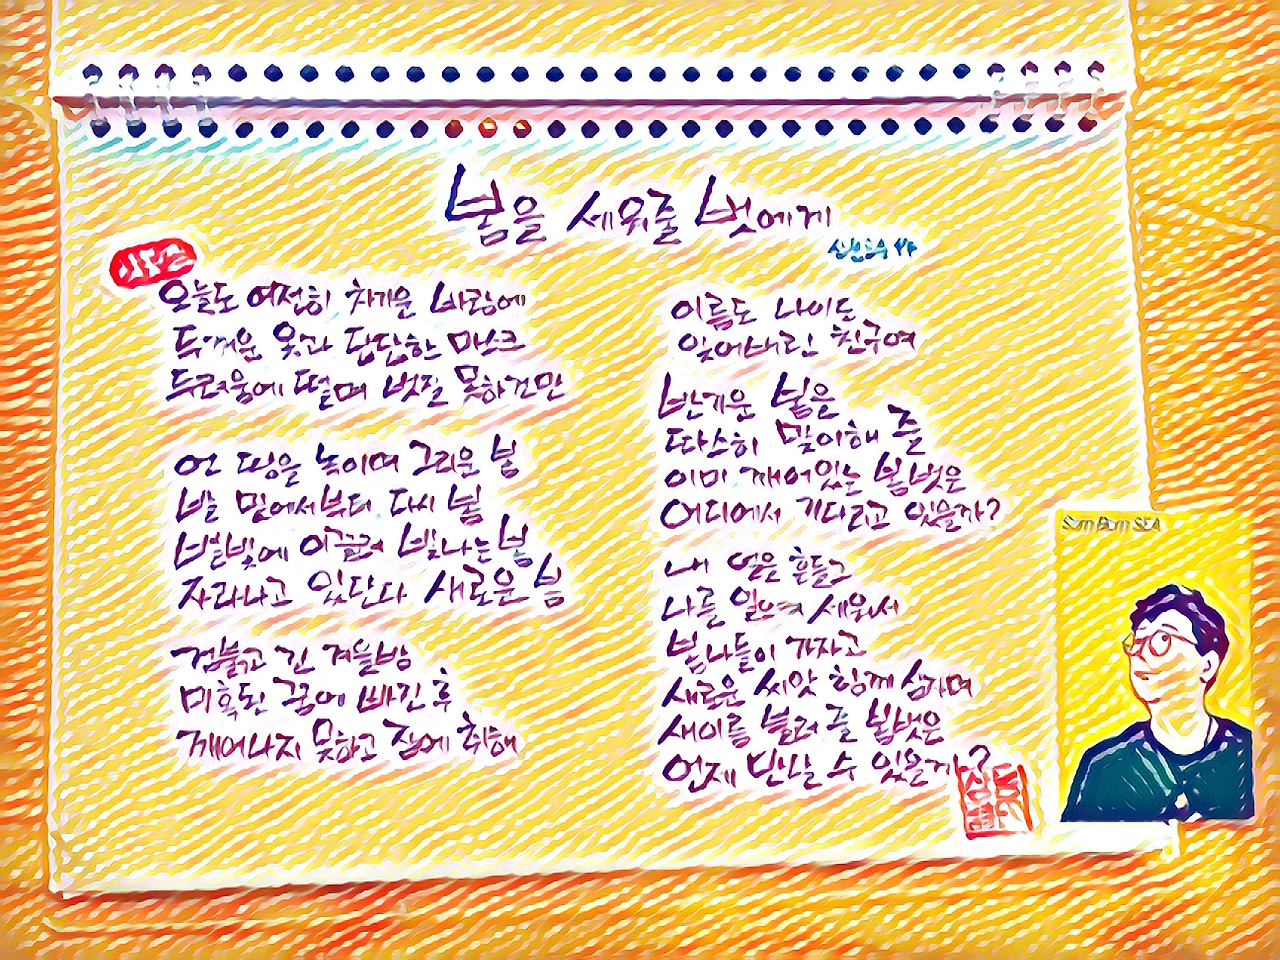 봄을 세워줄 벗에게
오늘도 여전히 차가운 바람에
두꺼운 옷과 단단한 마스크
두려움에 떨며 벗질 못하건만
언 땅을 녹이며 그리운 봄
발 밑에서부터 다시 봄
별빛에 이끌려 빛나는 봄
자라나고 있단다 새로운 봄
검붉고 긴 겨울밤
미혹된 꿈에 빠진 후
깨어나지 못하고 잠에 취해
이름도 나이도
잊어버린 친구여
반가운 봄을
따스히 맞이해 줄
이미 깨어있는 봄벗은
어디에서 기다리고 있을까?
내 얼을 흔들고
나를 일으켜 세워서
봄나들이 가자고
새로운 씨앗 함께 심자며
새이름 불러 줄 봄벗은
언제 만날 수 있을까?